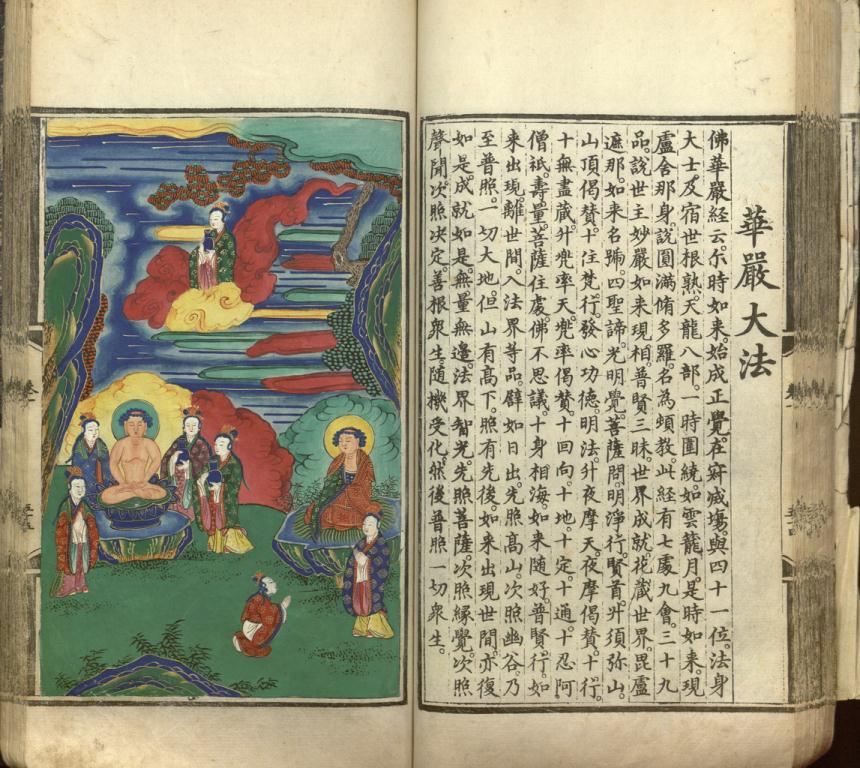 華嚴大法
佛華嚴經云。尒時如来。始成正覺。在寂滅塲。與四十一位。法身
大士。及宿世根熟。天龍八部。一時圍繞。如雲籠月。是時如来。現
盧舍那身。說圓滿脩多羅。名為頓教。此經有七處九會。三十九
品。說世主妙嚴。如来現相。普賢三昧。世界成就。花藏世界。毘盧
遮那。如来名號。四聖諦。光明覺。菩薩問明。淨行。賢首。升須弥山。
山頂偈賛。十住。梵行。發心功德。明法。升夜摩天。夜摩偈賛。十行。
十無盡藏。升兠率天。兠率偈賛。十回向。十地。十定。十通。十忍。阿
僧祇。壽量。菩薩住處。佛不思議。十身相海。如来随好。普賢行。如
来出現。離世間。入法界等品。譬如日出。先照高山。次照幽谷。乃
至普照。一切大地。但山有高下。照有先後。如来出現世間。亦復
如是。成就如是。無量無邉。法界智光。先照菩薩。次照緣覺。次照
聲聞。次照决定。善根衆生。随機受化。然後普照一切衆生。